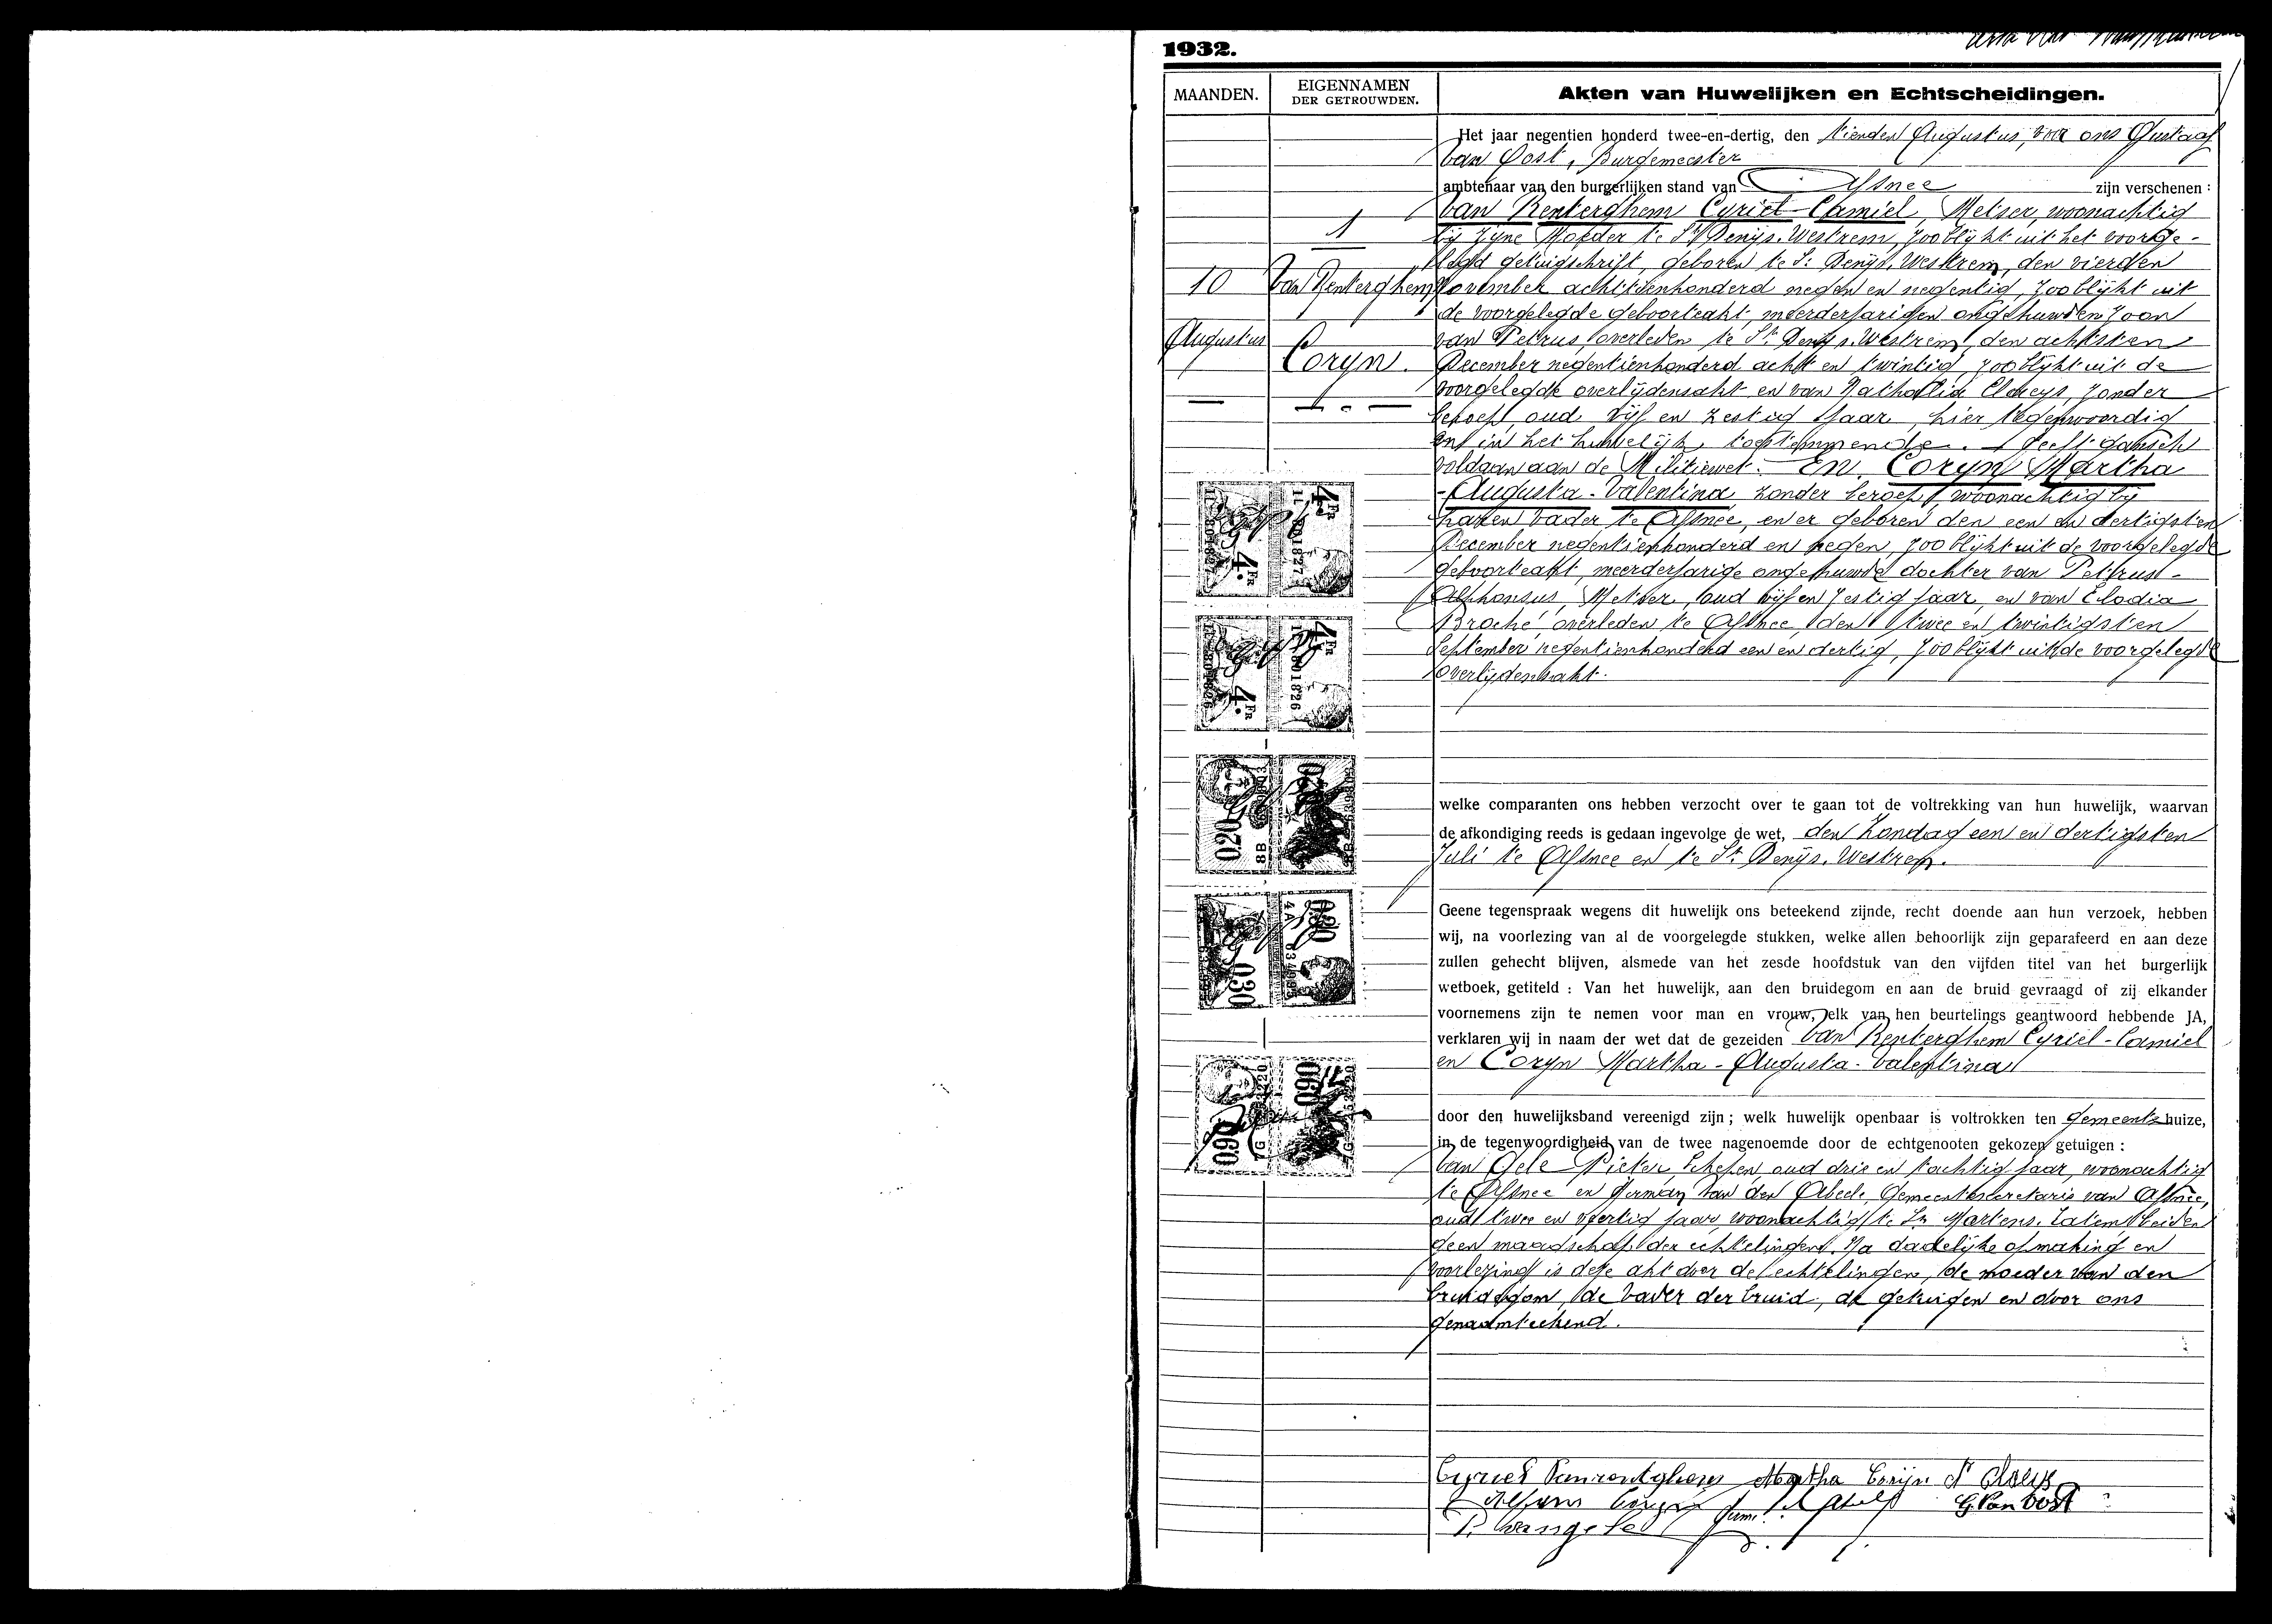 1932.
MAANDEN.
EIGENNAMEN
DER GETROUWDEN.
Akten van Huwelijken en Echtscheidingen.
1
10
Augustus
Van Renterghem
Coryn.
Het jaar negentien honderd twee-en-dertig, den tienden Augustus, voor ons Gustaaf
Van Oost, Burgemeester
ambtenaar van den burgerlijken stand van Afsnee zijn verschenen :
Van Renterghem Cyriel-Camiel, Metser, woonachtig
bij zijne Moeder te St Denijs. Westrem, zoo blijkt uit het voorge-
legd getuigschrift, geboren te St Denijs. Westrem, den vierden
November achttienhonderd negen en negentig, zoo blijkt uit
de voorgelegde geboorteakt, meerderjarigen ongehuwden zoon
van Petrus, overleden te St Denijs. Westrem, den achtsten
December negentienhonderd acht en twintig, zoo blijkt uit de
voorgelegde overlijdensakt en van Nathalia Claeys, zonder
beroep, oud vijf en zestig jaar, hier tegenwoordig
en in het huwelijk toestemmende. Heeft gansch
voldaan aan de Militiewet. En, Coryn Martha
-Augusta-Valentina zonder beroep, woonachtig bij
haren vader te Afsnee, en er geboren den een en dertigsten
December negentienhonderd en negen, zoo blijkt uit de voorgelegde
geboorteakt, meerderjarige ongehuwde dochter van Petrus-
Alphonsus, Metser, oud vijf en zestig jaar, en van Elodia
Broché, overleden te Afsnee, den twee en twintigsten
September negentienhonderd een en dertig, zoo blijkt uit de voorgelegde
overlijdensakt.
welke comparanten ons hebben verzocht over te gaan tot de voltrekking van hun huwelijk, waarvan
de afkondiging reeds is gedaan ingevolge de wet, den Zondag een en dertigsten
Juli te Afsnee en te St Denijs. Westrem.
Geene tegenspraak wegens dit huwelijk ons beteekend zijnde, recht doende aan hun verzoek, hebben
wij, na voorlezing van al de voorgelegde stukken, welke allen behoorlijk zijn geparafeerd en aan deze
zullen gehecht blijven, alsmede van het zesde hoofdstuk van den vijfden titel van het burgerlijk
wetboek, getiteld : Van het huwelijk, aan den bruidegom en aan de bruid gevraagd of zij elkander
voornemens zijn te nemen voor man en vrouw, elk van hen beurtelings geantwoord hebbende JA,
verklaren wij in naam der wet dat de gezeiden Van Renterghem Cyriel-Camiel
en Coryn Martha-Augusta-Valentina
door den huwelijksband vereenigd zijn ; welk huwelijk openbaar is voltrokken ten gemeentehuize,
in de tegenwoordigheid van de twee nagenoemde door de echtgenooten gekozen getuigen :
Van Gele Pieter, Schepen, oud drie en tachtig jaar, woonachtig
te Afsnee en Firmin Van den Abeele, Gemeentesecretaris van Afsnee,
oud twee en veertig jaar, woonachtig te St Martens. Latem, beiden
geen maagschap der echtelingen. Na dadelijke opmaking en
voorlezing is deze akt door de echtelingen, de moeder van den
bruidegom, de vader der bruid, de getuigen en door ons
genaamteekend.
4 FR
4. FR
801827
4 FR
4. FR
801826
0.20
8B
030
4A
060
7G
Cyriel Vanrenterghem Martha Corijn N Claeys
Alfons Corijn G. Van Oost
P. Vangele